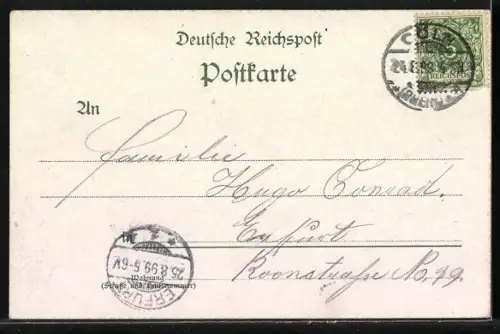 Deutsche Reichspost
Postkarte
CÖLN
24.8.99
5
An
Familie
Hugo Conrad.
Erfurt
Roonstraße N. 49.
25.8.99.5-6V.
ERFURT
Wohnung
(Straße und Hausnummer)